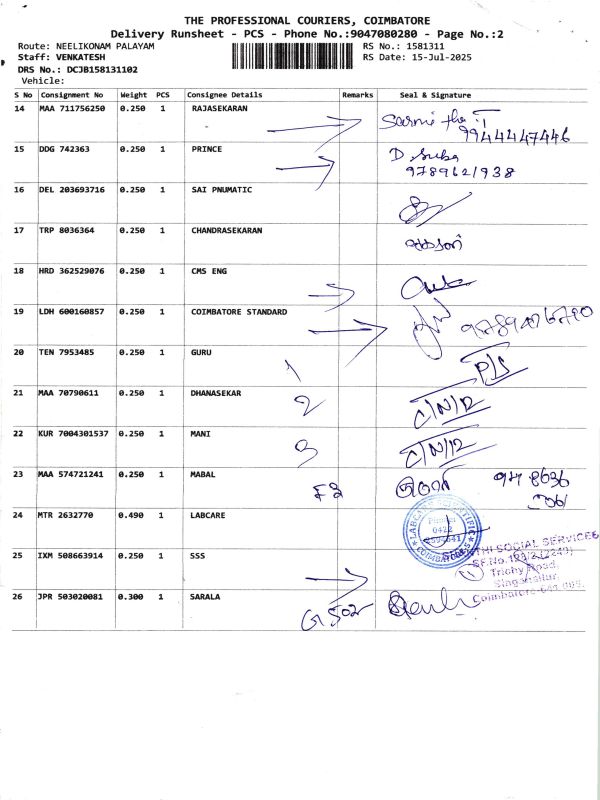 THE PROFESSIONAL COURIERS, COIMBATORE
Delivery Runsheet - PCS - Phone No.:9047080280 - Page No.:2
Route: NEELIKONAM PALAYAM RS No.: 1581311
Staff: VENKATESH RS Date: 15-Jul-2025
DRS No.: DCJB158131102
Vehicle:
S No Consignment No Weight PCS Consignee Details Remarks Seal & Signature
14 MAA 711756250 0.250 1 RAJASEKARAN
9944447446
15 DDG 742363 0.250 1 PRINCE D. Suba
9789621938
16 DEL 203693716 0.250 1 SAI PNUMATIC
17 TRP 8036364 0.250 1 CHANDRASEKARAN
18 HRD 362529076 0.250 1 CMS ENG
19 LDH 600160857 0.250 1 COIMBATORE STANDARD
20 TEN 7953485 0.250 1 GURU 1 P/S
21 MAA 70790611 0.250 1 DHANASEKAR 2 C/N/R
22 KUR 7004301537 0.250 1 MANI 3 C/N/R
23 MAA 574721241 0.250 1 MABAL F3
24 MTR 2632770 0.490 1 LABCARE
LABCARE SCIENTIFIC
0422
COIMBATORE
25 IXM 508663914 0.250 1 SSS
SOCIAL SERVICES
Trichy Road,
Singanallur,
Coimbatore-641 005.
26 JPR 503020081 0.300 1 SARALA G 502